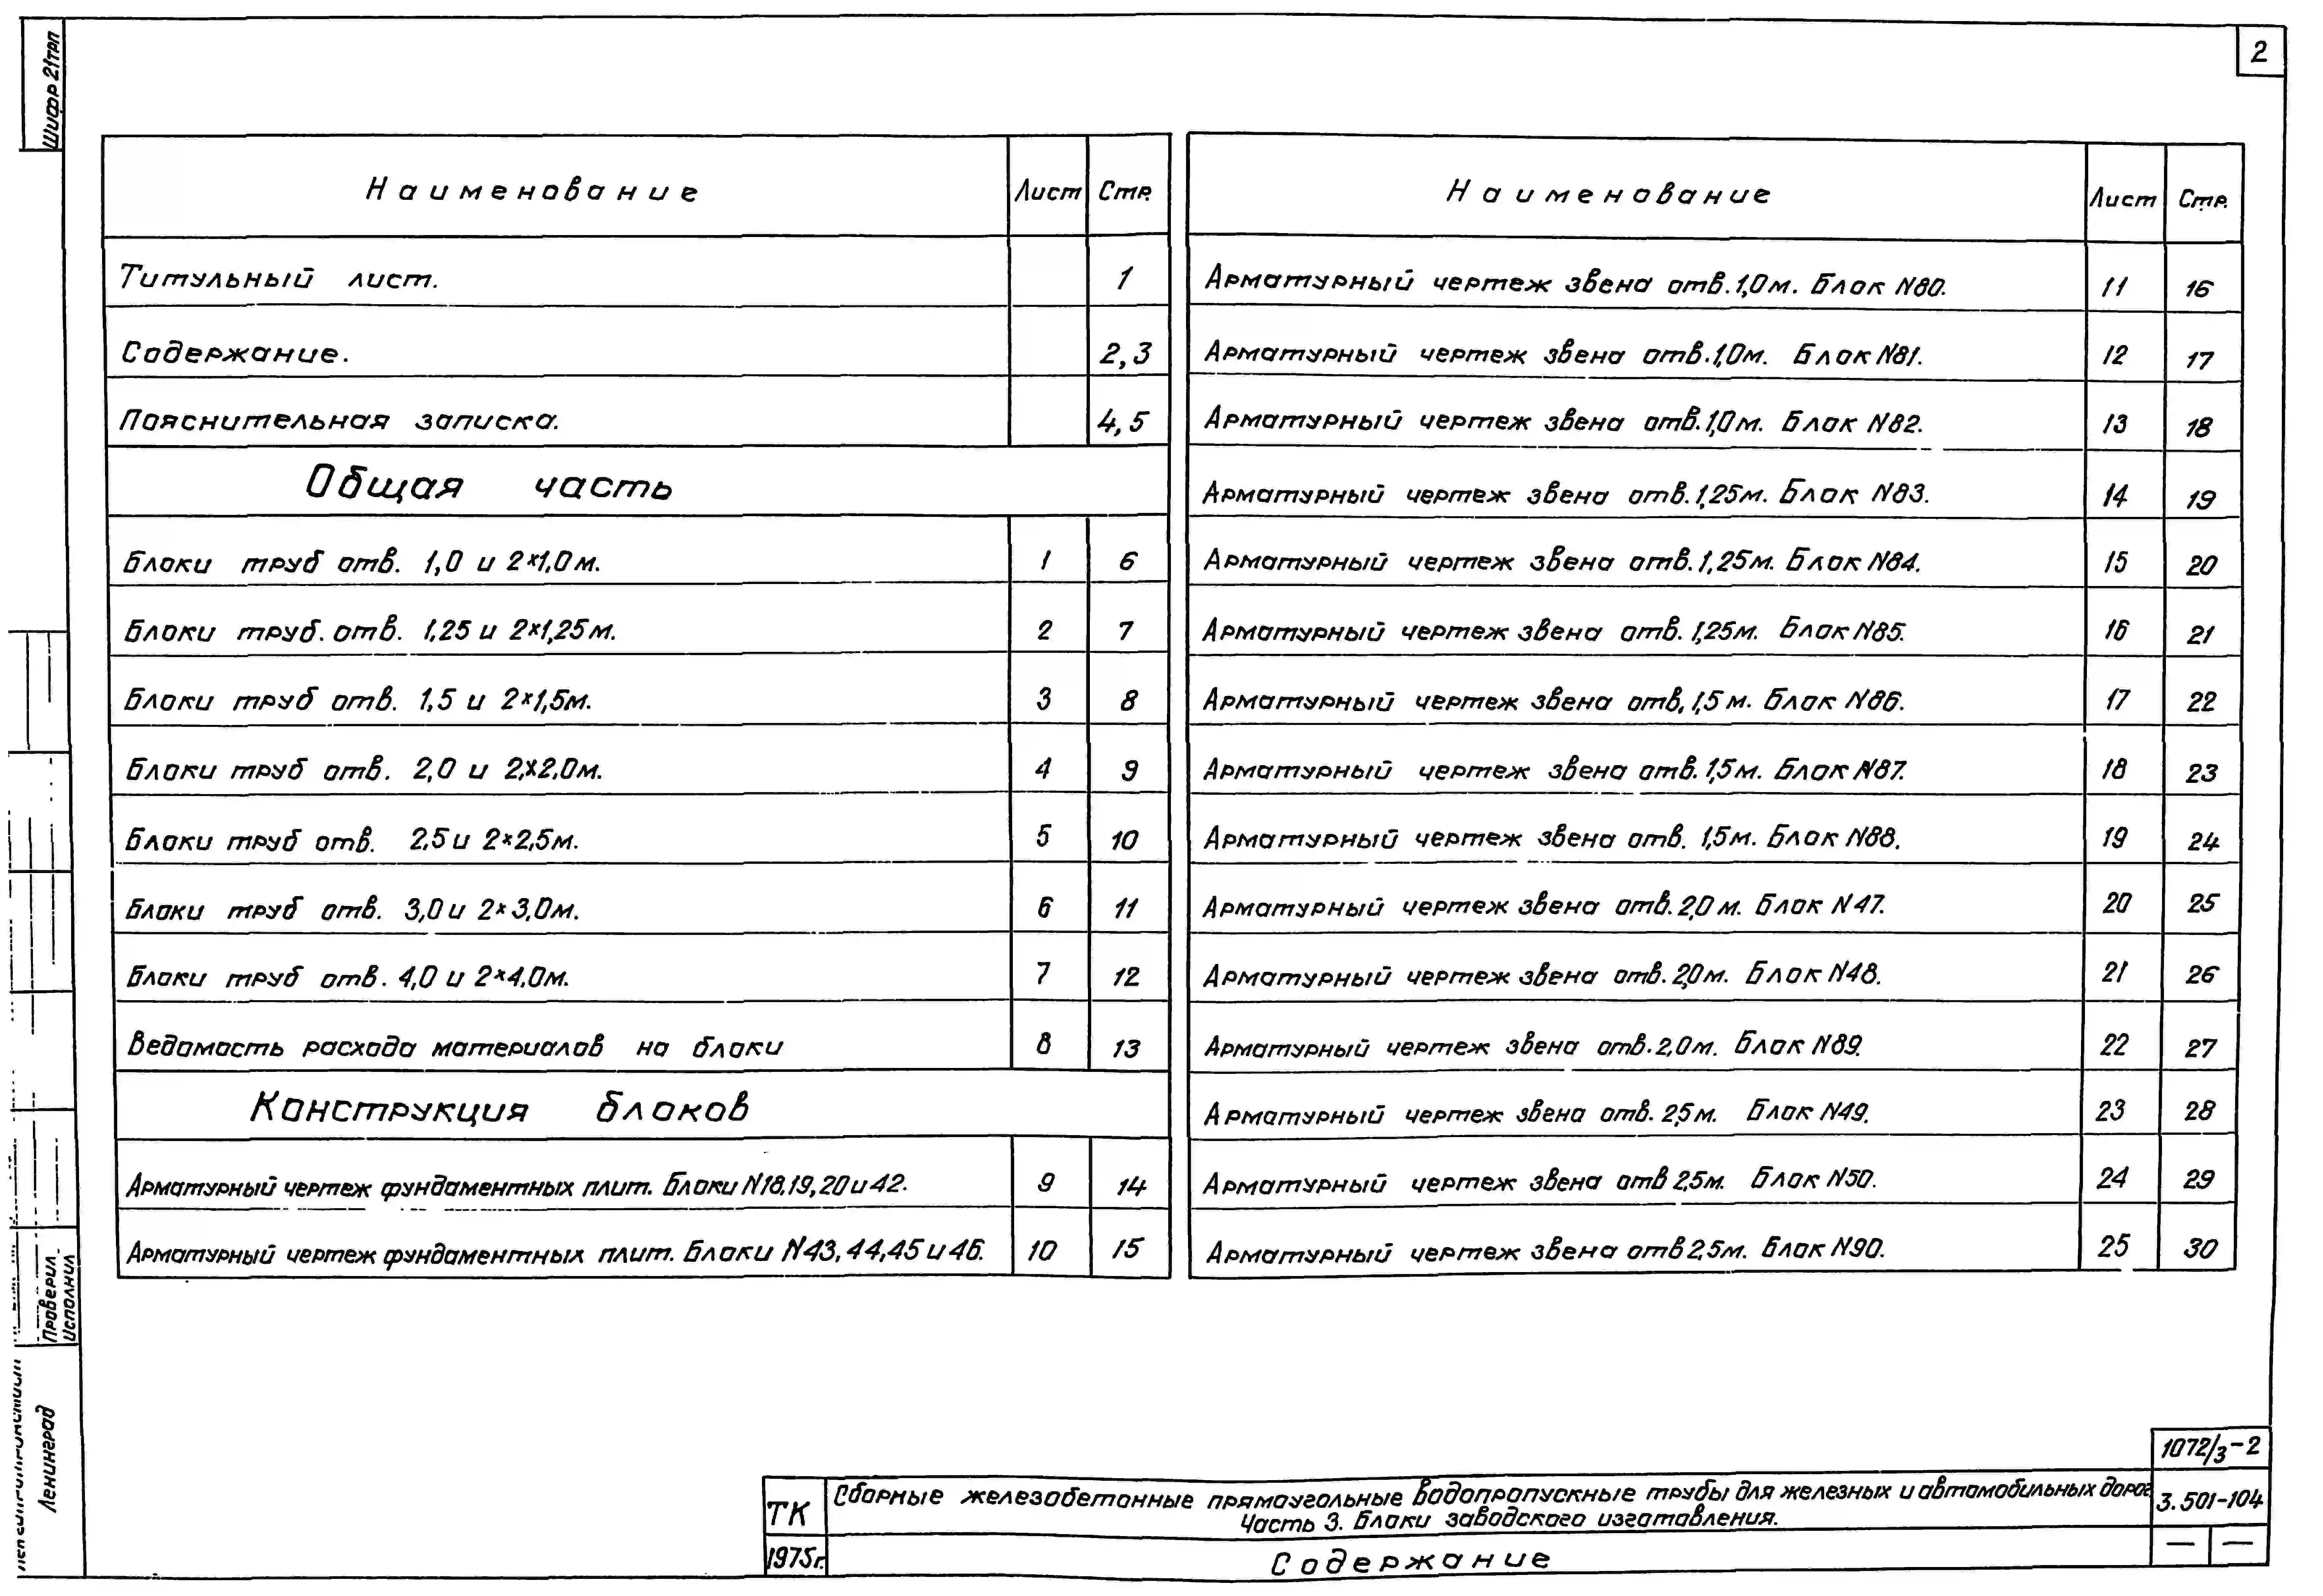 Шифр 21трп
2
Наименование Лист Стр.
Титульный лист. 1
Содержание. 2,3
Пояснительная записка. 4,5
Общая часть
Блоки труб отв. 1,0 и 2×1,0м. 1 6
Блоки труб. отв. 1,25 и 2×1,25м. 2 7
Блоки труб отв. 1,5 и 2×1,5м. 3 8
Блоки труб отв. 2,0 и 2×2,0м. 4 9
Блоки труб отв. 2,5 и 2×2,5м. 5 10
Блоки труб отв. 3,0 и 2×3,0м. 6 11
Блоки труб отв. 4,0 и 2×4,0м. 7 12
Ведомость расхода материалов на блоки 8 13
Конструкция блоков
Арматурный чертеж фундаментных плит. Блоки N18,19,20 и 42. 9 14
Арматурный чертеж фундаментных плит. Блоки N43,44,45 и 46. 10 15
Наименование Лист Стр.
Арматурный чертеж звена отв. 1,0м. Блок N80. 11 16
Арматурный чертеж звена отв. 1,0м. Блок N81. 12 17
Арматурный чертеж звена отв. 1,0м. Блок N82. 13 18
Арматурный чертеж звена отв. 1,25м. Блок N83. 14 19
Арматурный чертеж звена отв. 1,25м. Блок N84. 15 20
Арматурный чертеж звена отв. 1,25м. Блок N85. 16 21
Арматурный чертеж звена отв. 1,5м. Блок N86. 17 22
Арматурный чертеж звена отв. 1,5м. Блок N87. 18 23
Арматурный чертеж звена отв. 1,5м. Блок N88. 19 24
Арматурный чертеж звена отв. 2,0м. Блок N47. 20 25
Арматурный чертеж звена отв. 2,0м. Блок N48. 21 26
Арматурный чертеж звена отв. 2,0м. Блок N89. 22 27
Арматурный чертеж звена отв. 2,5м. Блок N49. 23 28
Арматурный чертеж звена отв 2,5м. Блок N50. 24 29
Арматурный чертеж звена отв 2,5м. Блок N90. 25 30
Проверил
Исполнил
Ленинград
1072/3-2
ТК Сборные железобетонные прямоугольные водопропускные трубы для железных и автомобильных дорог 3.501-104
Часть 3. Блоки заводского изготовления.
1975г. Содержание — —